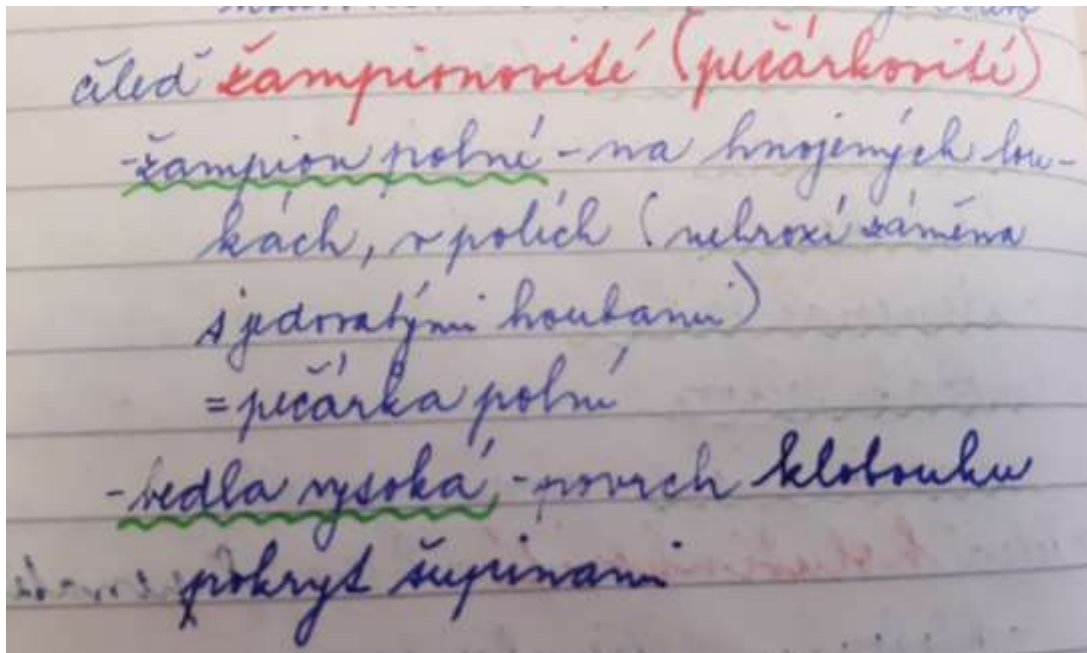 čeleď žampionovité (pečárkovité)
-žampion polní - na hnojených lou-
kách, v polích (nehrozí záměna
s jedovatými houbami)
= pečárka polní
-bedla vysoká - povrch klobouku
pokryt šupinami